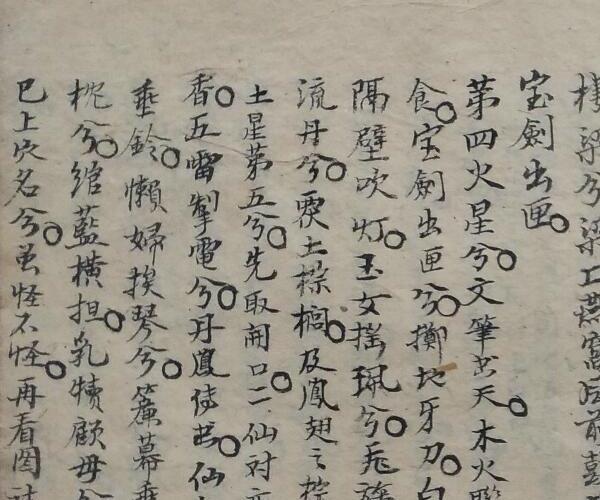 樑梁兮梁上燕窩
宝劍出匣
第四火星兮文筆出天木火
食宝劍出匣兮擲地牙刀
隔壁吹灯玉女搖珮兮
流丹兮 土 及鳳翅之
土星第五兮先取開口二仙对
香五雷掣電兮丹鳳 仙
垂鈴懶婦挨琴兮簾幕垂
枕兮綰藍橫担乳犢顧母兮
巳上穴名兮 怪不怪再看圖